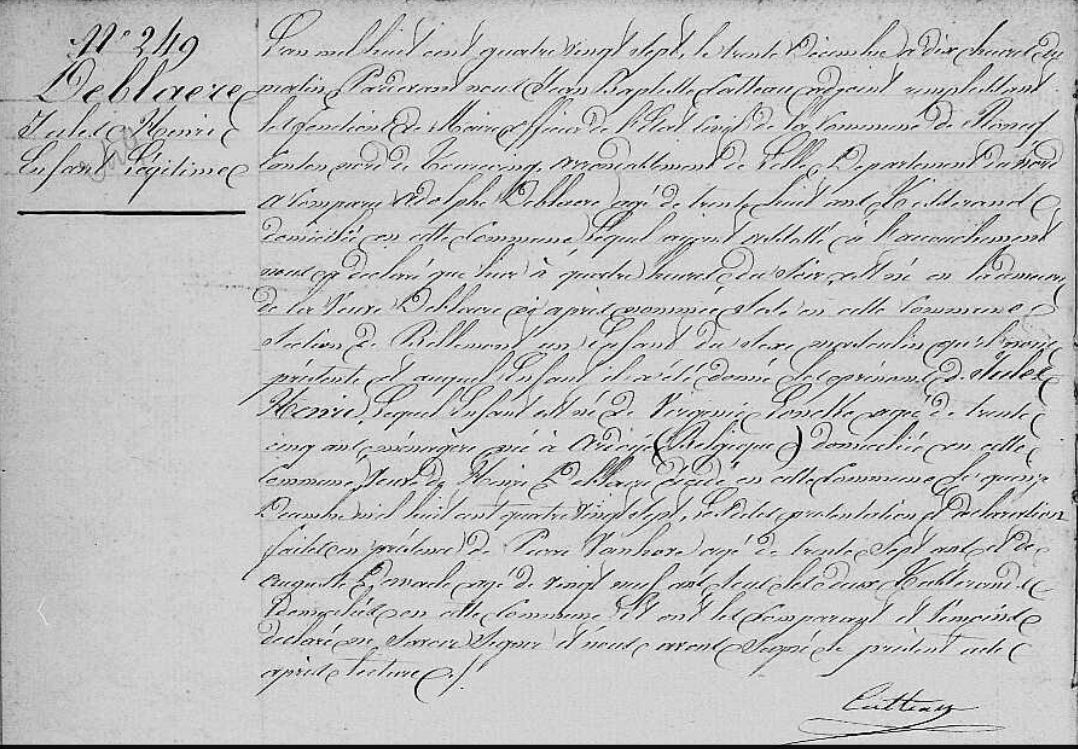 N° 249
Deblaere
Jules Henri
Enfant Légitime
L'an mil huit cent quatre vingt sept, le trente Décembre à dix heures du
matin, Pardevant nous Jean Baptiste Catteau adjoint remplissant
les fonctions de Maire officier de l'Etat Civil de la Commune de
Canton nord de Tourcoing, arrondissement de Lille, Département du Nord
a comparu Adolphe Deblaere agé de trente huit ans, Tisserand
domicilié en cette Commune, Lequel ayant assisté à l'accouchement
nous a déclaré que hier à quatre heures du soir, est né en la demeure
de la Veuve Deblaere ci après nommée, sise en cette Commune
section de un Enfant du sexe masculin qu'il nous
présente et auquel Enfant il a été donné les prénoms de Jules
Henri, Lequel Enfant est né de Virginie agée de trente
cinq ans, ménagère née à Ardoye (Belgique) domiciliée en cette
Commune, Veuve de Henri Deblaere décédé en cette Commune le quinze
Décembre mil huit cent quatre vingt sept, Lesdites présentation et Déclaration
faites en présence de Pierre Vanhove agé de trente sept ans et de
Auguste agé de vingt neuf ans, tous les deux Tisserands
Domiciliés en cette Commune Et ont les Comparant et témoins
déclaré ne Savoir Signer et nous avons Signé le présent acte
après lecture./.
Catteau